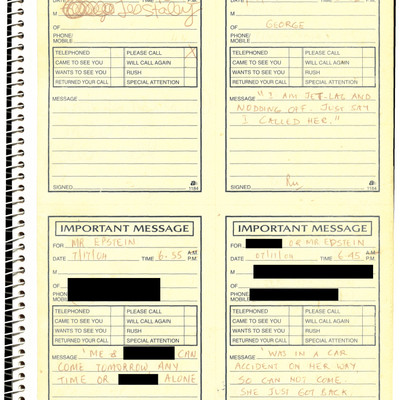 Jes Staley
OF
PHONE/
MOBILE
TELEPHONED PLEASE CALL X
CAME TO SEE YOU WILL CALL AGAIN
WANTS TO SEE YOU RUSH
RETURNED YOUR CALL SPECIAL ATTENTION
MESSAGE
SIGNED
1184
M GEORGE
OF
PHONE/
MOBILE
TELEPHONED PLEASE CALL
CAME TO SEE YOU WILL CALL AGAIN
WANTS TO SEE YOU RUSH
RETURNED YOUR CALL SPECIAL ATTENTION
MESSAGE "I AM JET-LAG AND
NODDING OFF. JUST SAY
I CALLED HER."
SIGNED
1184
IMPORTANT MESSAGE
FOR MR EPSTEIN
DATE TIME 6.55 A.M. P.M.
M
OF
PHONE/
MOBILE
TELEPHONED PLEASE CALL
CAME TO SEE YOU WILL CALL AGAIN
WANTS TO SEE YOU RUSH
RETURNED YOUR CALL SPECIAL ATTENTION
MESSAGE "ME & CAN
COME TOMORROW ANY
TIME OR ALONE
IMPORTANT MESSAGE
FOR OR MR EPSTEIN
DATE TIME 6.45 A.M. P.M.
M
OF
PHONE/
MOBILE
TELEPHONED PLEASE CALL
CAME TO SEE YOU WILL CALL AGAIN
WANTS TO SEE YOU RUSH
RETURNED YOUR CALL SPECIAL ATTENTION
MESSAGE "WAS IN A CAR
ACCIDENT ON HER WAY
SO CAN NOT COME.
SHE JUST GOT BACK.